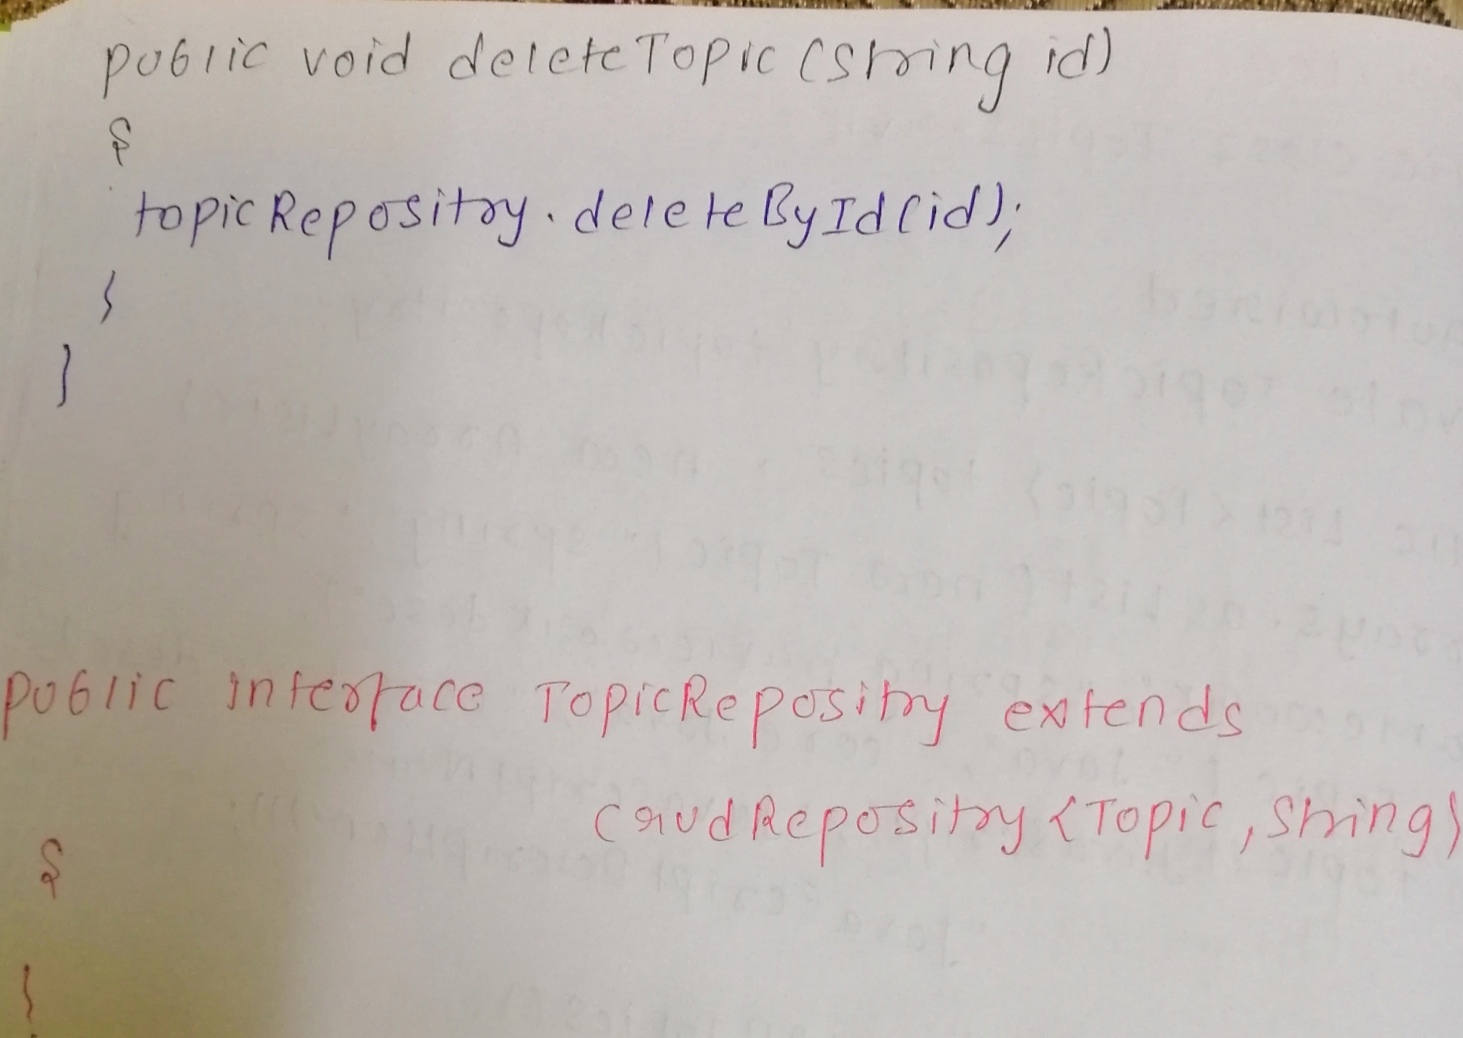 public void deleteTopic (String id)
{
topicRepositry.deleteById(id);
}
}
public interface TopicRepositry extends
CrudRepositry <Topic, String>
{
}